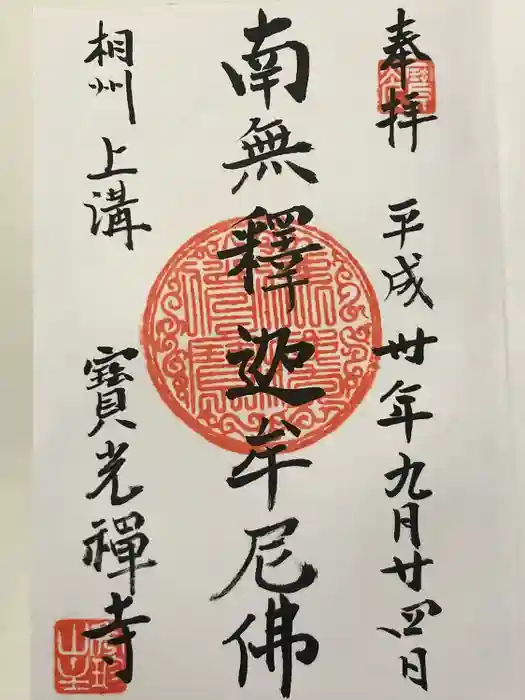 奉拝 平成卅年九月廿四日
南無釋迦牟尼佛
相州上溝 寳光禪寺